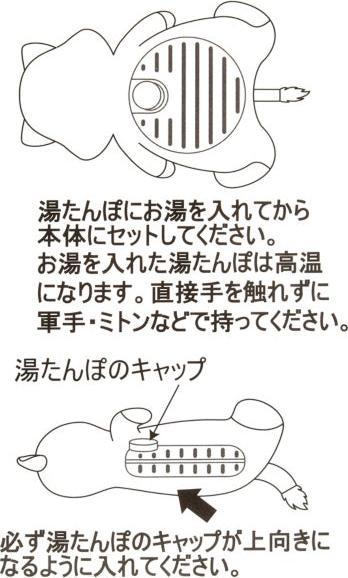 湯たんぽにお湯を入れてから
本体にセットしてください。
お湯を入れた湯たんぽは高温
になります。直接手を触れずに
軍手・ミトンなどで持ってください。
湯たんぽのキャップ
必ず湯たんぽのキャップが上向きに
なるように入れてください。